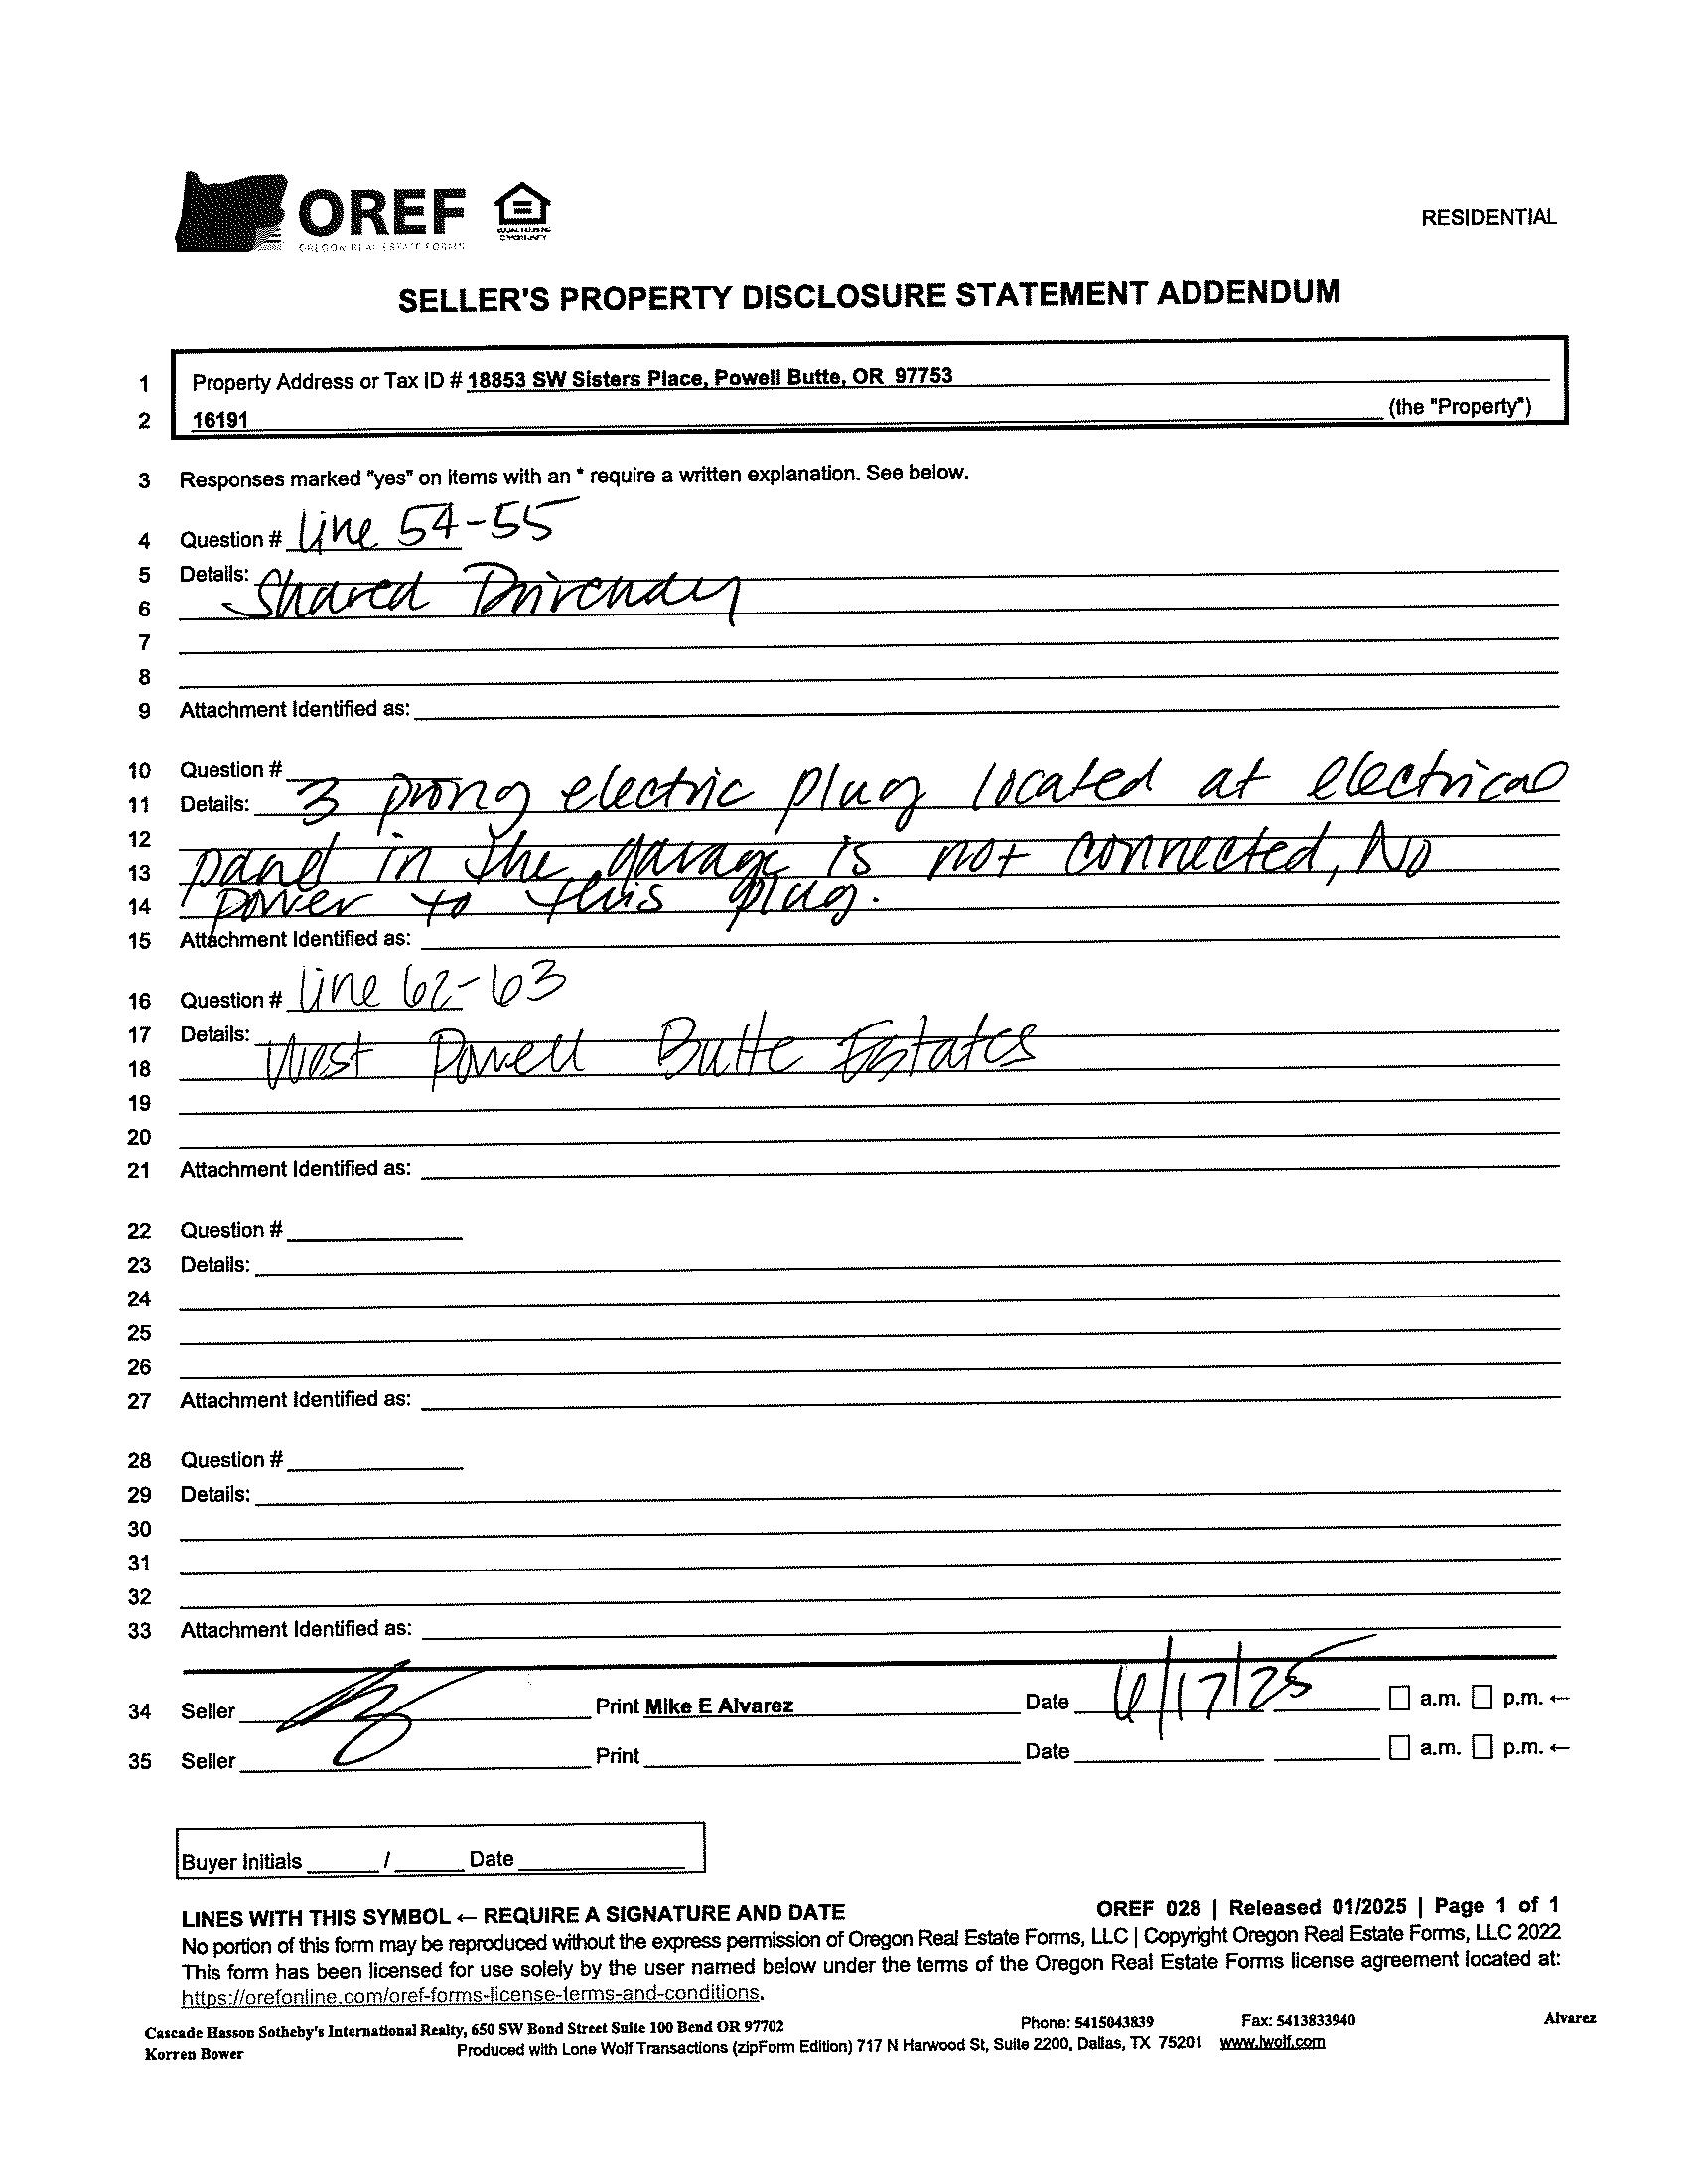 OREF
OREGON REAL ESTATE FORMS
EQUAL HOUSING
OPPORTUNITY
RESIDENTIAL
SELLER'S PROPERTY DISCLOSURE STATEMENT ADDENDUM
1 Property Address or Tax ID # 18853 SW Sisters Place, Powell Butte, OR 97753
2 16191 (the "Property")
3 Responses marked "yes" on items with an * require a written explanation. See below.
4 Question # line 54-55
5 Details:
6 Shared Driveway
7
8
9 Attachment Identified as:
10 Question #
11 Details: 3 prong electric plug located at electrical
12
13 panel in the garage is not connected, No
14 power to this plug.
15 Attachment Identified as:
16 Question # line 62-63
17 Details:
18 West Powell Butte Estates
19
20
21 Attachment Identified as:
22 Question #
23 Details:
24
25
26
27 Attachment Identified as:
28 Question #
29 Details:
30
31
32
33 Attachment Identified as:
34 Seller Print Mike E Alvarez Date 6/17/25 a.m. p.m. ←
35 Seller Print Date a.m. p.m. ←
Buyer Initials / Date
LINES WITH THIS SYMBOL ← REQUIRE A SIGNATURE AND DATE OREF 028 | Released 01/2025 | Page 1 of 1
No portion of this form may be reproduced without the express permission of Oregon Real Estate Forms, LLC | Copyright Oregon Real Estate Forms, LLC 2022
This form has been licensed for use solely by the user named below under the terms of the Oregon Real Estate Forms license agreement located at:
https://orefonline.com/oref-forms-license-terms-and-conditions.
Cascade Hasson Sotheby's International Realty, 650 SW Bond Street Suite 100 Bend OR 97702 Phone: 5415043839 Fax: 5413833940 Alvarez
Korren Bower Produced with Lone Wolf Transactions (zipForm Edition) 717 N Harwood St, Suite 2200, Dallas, TX 75201 www.lwolf.com